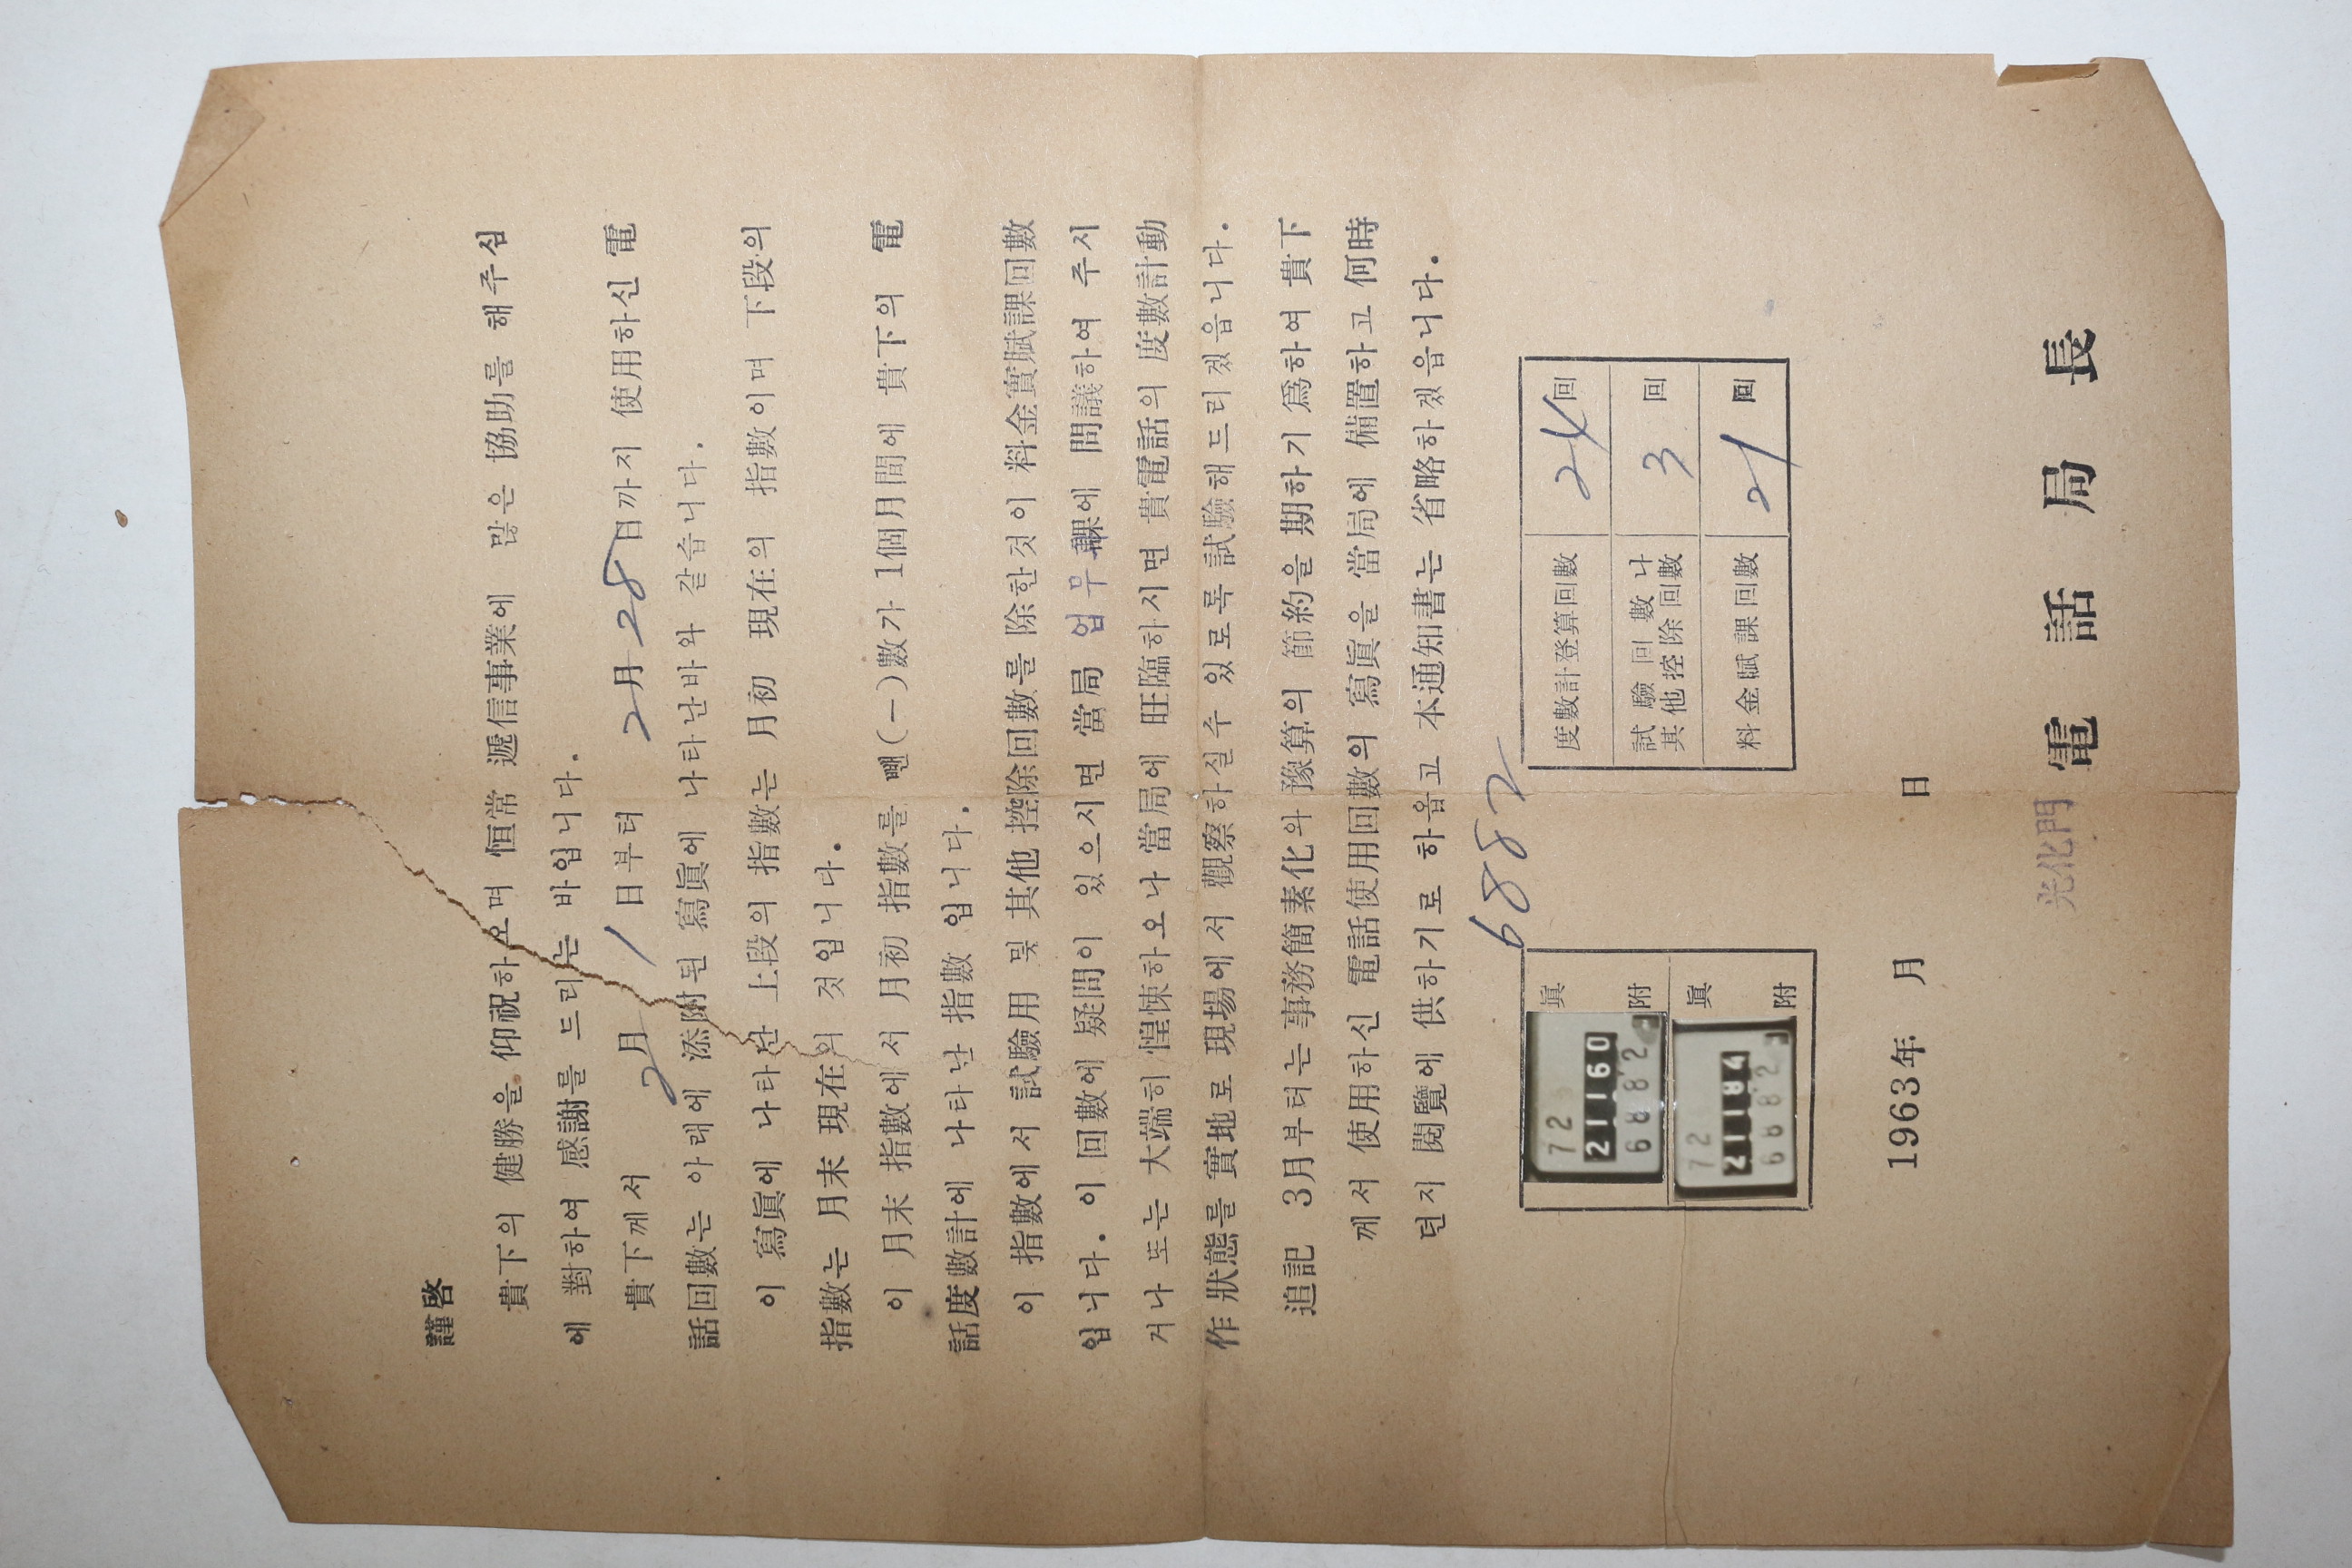 謹啓
貴下의 健勝을 仰祝하오며 恒常 遞信事業에 많은 協助를 해주심
에 對하여 感謝를 드리는 바입니다.
貴下께서 2月 1日부터 2月 28日까지 使用하신 電
話回數는 아래에 添附된 寫眞에 나타난바와 같습니다.
이 寫眞에 나타난 上段의 指數는 月初 現在의 指數이며 下段의
指數는 月末 現在의 것입니다.
이 月末 指數에서 月初 指數를 뺀(一)數가 1個月間에 貴下의 電
話度數計에 나타난 指數 입니다.
이 指數에서 試驗用 및 其他 控除回數를 除한것이 料金實賦課回數
입니다. 이 回數에 疑問이 있으시면 當局 업무課에 問議하여 주시
거나 또는 大端히 惶悚하오나 當局에 旺臨하시면 貴電話의 度數計動
作 狀態를 實地로 現場에서 觀察하실수 있로록 試驗해드리겠읍니다.
追記 3月부터는 事務簡素化와 豫算의 節約을 期하기 爲하여 貴下
께서 使用하신 電話使用回數의 寫眞을 當局에 備置하고 何時
던지 閱覽에 供하기로 하옵고 本通知書는 省略하겠읍니다.
6882
眞
附
72
21160
6882
眞
附
72
21184
6882
度數計登算回數 24回
試驗回數나
其他控除回數 3 回
料金賦課回數 21 回
1963年 月 日
光化門 電話局長